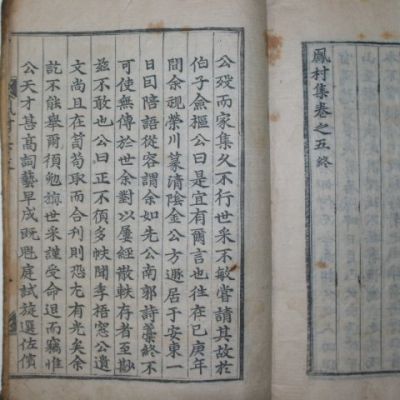 鳳村集卷之五終
公歿而家集久不行世采不敏嘗請其故於
伯子僉樞公曰是宜有爾言也往在已庚年
間余視榮川篆清陰金公方遯居于安東一
日因陪語從容謂余如先公南郭詩藁終不
可使無傳於世余對以屢經散軼存者至尠
玆不敢也公曰正不須多帙聞李梧窓公遺
文尚且在笥苟取而合刊則恐尤有光矣余
訖不能擧爾須勉旃世采謹受命退而竊惟
公天才甚高詞藝早成旣魁庭試旋選佐儐